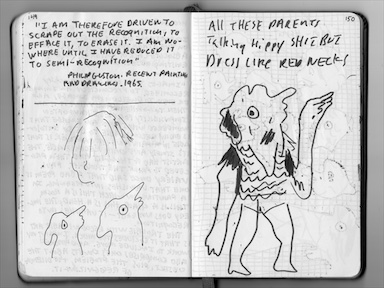 149
"I AM THEREFORE DRIVEN TO
SCRAPE OUT THE RECOGNITION, TO
EFFACE IT, TO ERASE IT. I AM NO-
WHERE UNTIL I HAVE REDUCED IT
TO SEMI-RECOGNITION"
PHILIP GUSTON. RECENT PAINTING
AND DRAWING. 1965.
150
ALL THESE PARENTS
Talking Hippy SHIT BUT
DRESS LIKE RED NECKS